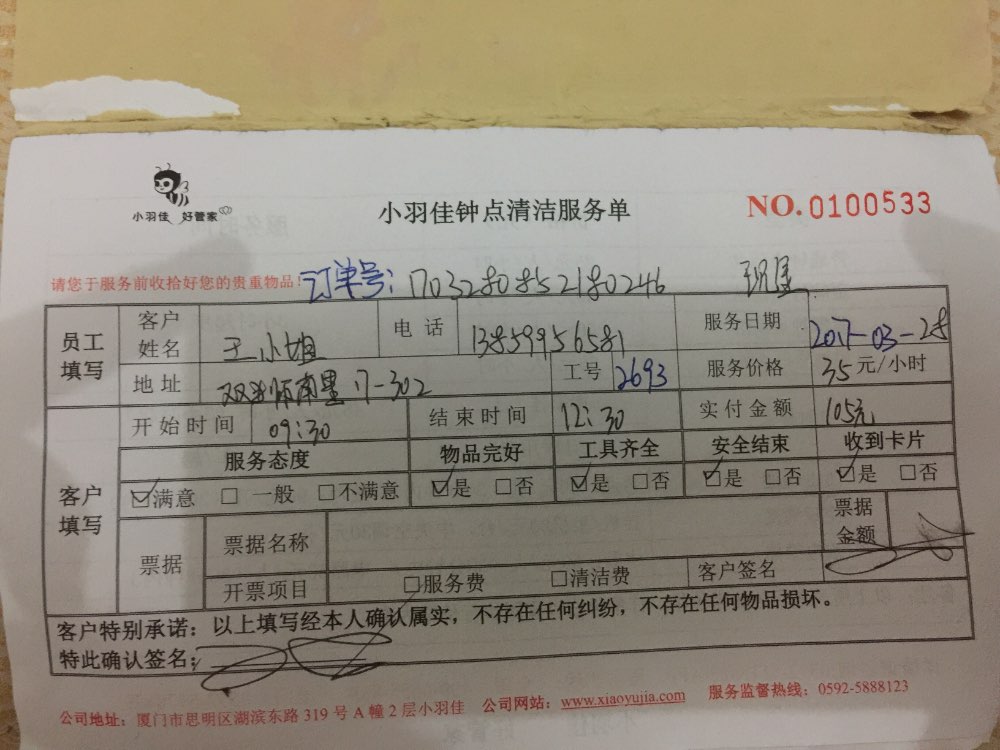 小羽佳 好管家
小羽佳钟点清洁服务单
NO.0100533
请您于服务前收拾好您的贵重物品!
订单号: 1703280852180246 现金
员工填写 客户姓名 王小姐 电话 13859956581 服务日期 2017-03-28
地址 南里 17-302 工号 2693 服务价格 35元/小时
客户填写 开始时间 09:30 结束时间 12:30 实付金额 105元
服务态度 物品完好 工具齐全 安全结束 收到卡片
☑满意 □一般 □不满意 ☑是 □否 ☑是 □否 ☑是 □否 ☑是 □否
票据 票据名称 票据金额
开票项目 □服务费 □清洁费 客户签名
客户特别承诺：以上填写经本人确认属实，不存在任何纠纷，不存在任何物品损坏。
特此确认签名：
公司地址：厦门市思明区湖滨东路 319 号 A 幢 2 层小羽佳 公司网站：www.xiaoyujia.com 服务监督热线：0592-5888123